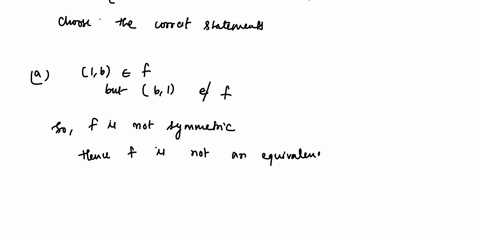 choose the correct statements
(a) (1,b) ∈ f
but (b,1) ∉ f
So, f is not symmetric
Hence f is not an equivalen